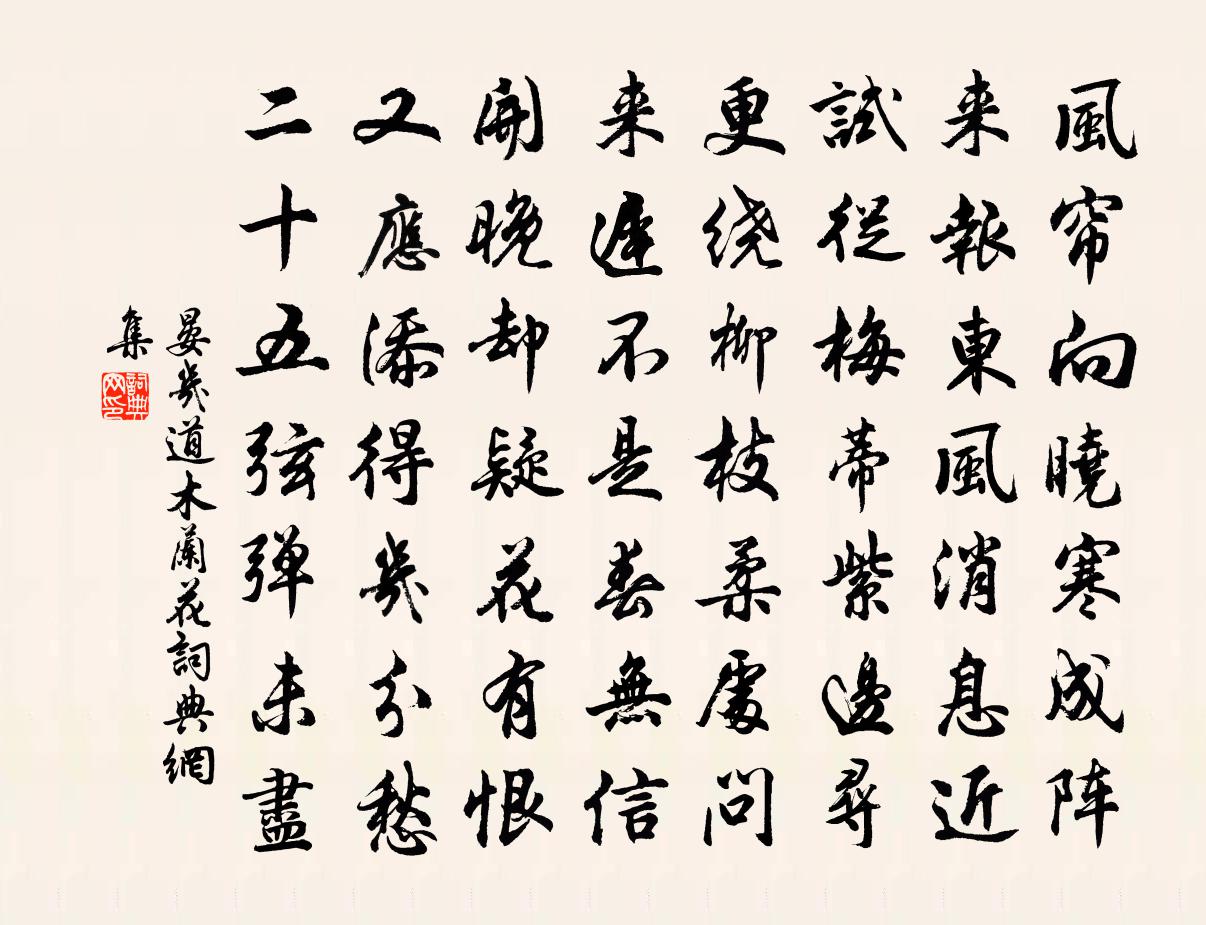 風帘向曉寒成阵
来報東風消息近
試從梅蒂紫邊尋
更绕柳枝柔處問
来遲不是春無信
開晚却疑花有恨
又應添得幾分愁
二十五弦弹未盡
晏幾道木蘭花詞典網
集
詞典
网印